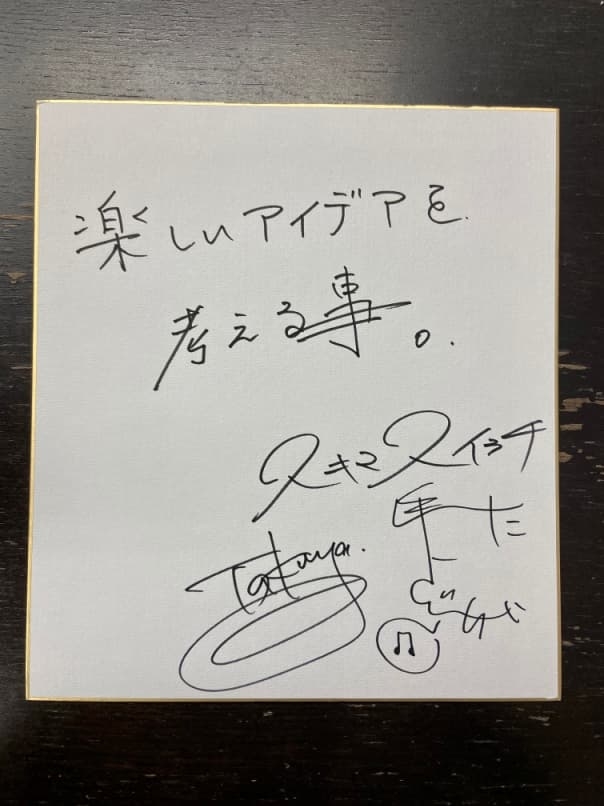 楽しいアイデアを
考える事。
スキマスイッチ
Takuya.